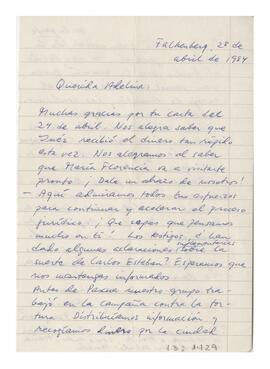 Falkenberg, 28 de
abril de 1984
Querida Adelina:
Muchas gracias por tu carta del
24 de abril. Nos alegra saber que
Inéz recibió el dinero tan rápido
esta vez. Nos alegramos al saber
que María Florencia va a visitarte
pronto. ¡Dale un abrazo de nosotros!
- Aquí admiramos todos tus esfuerzos
para continuar y acelerar el proceso
jurídico. ¡Qué sepas que pensamos
mucho en ti! Los testigos, ¿han
dado algunas aclaraciones sobre la
muerte de Carlos Esteban? Esperamos que
nos mantengas informados
Antes de Pascua nuestro grupo tra-
bajó en la campaña contra la tor-
tura. Distribuimos información y
recogíamos dinero por la ciudad